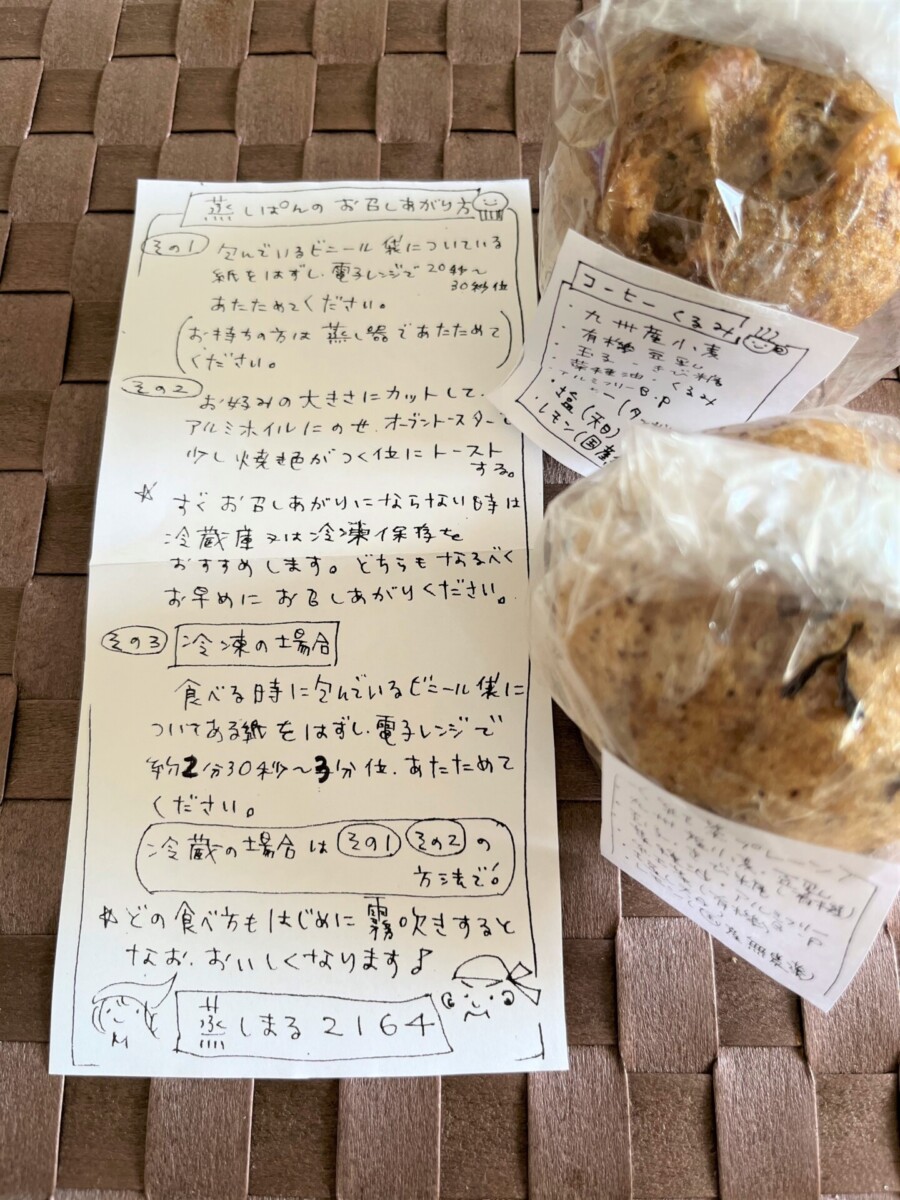 蒸しぱんのお召しあがり方
その1
包んでいるビニール袋についている
紙をはずし、電子レンジで20秒〜
30秒位
あたためてください。
(お持ちの方は蒸し器であたためて
ください。)
その2
お好みの大きさにカットして、
アルミホイルにのせ、オーブントースターで
少し焼き色がつく位にトースト
する。
☆ すぐお召しあがりにならない時は
冷蔵庫又は冷凍保存を
おすすめします。どちらもなるべく
お早めにお召しあがりください。
その3 冷凍の場合
食べる時に包んでいるビニール袋に
ついてある紙をはずし、電子レンジで
約2分30秒〜3分位、あたためて
ください。
冷蔵の場合は その1 その2 の
方法で!
☆ どの食べ方もはじめに霧吹きすると
なお、おいしくなります♪
蒸しまる2164
コーヒーくるみ
・九州産小麦
・有機豆乳
・玉子・きび糖
・菜種油・くるみ
・アルミフリーB.P
・塩(天日)
・レモン(国産
プレーン